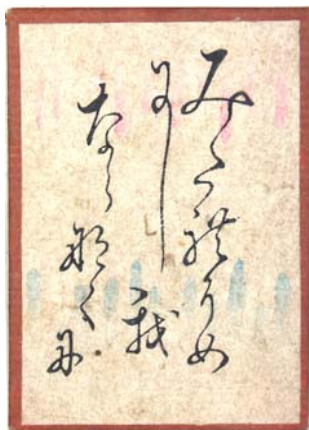 みたれそめ
にし我
ならなくに